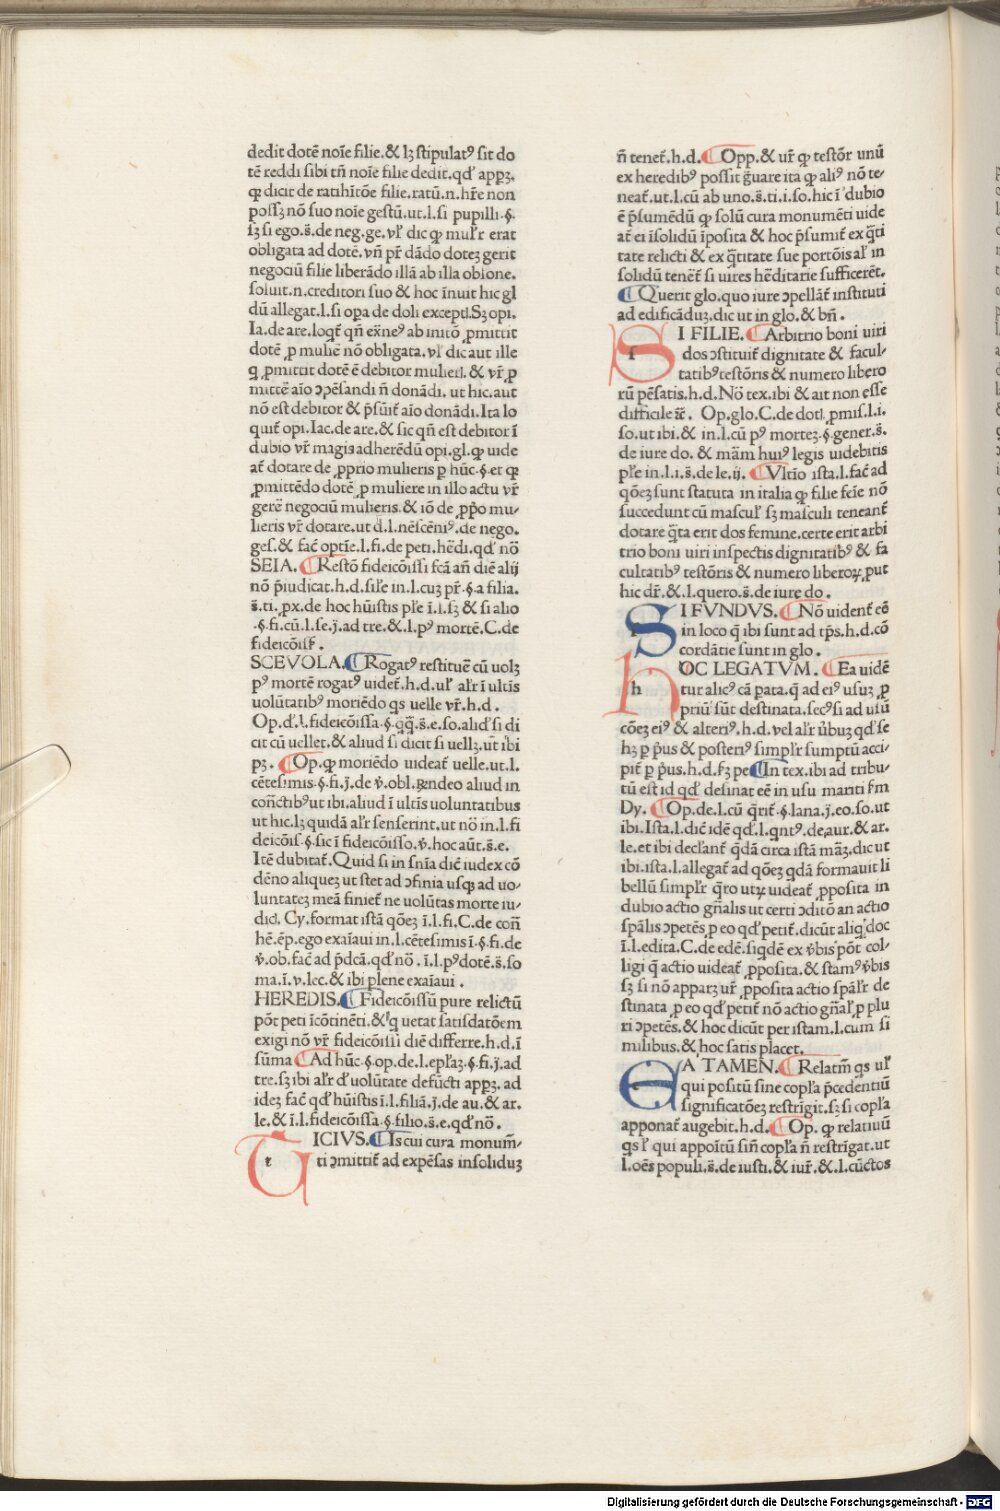 dedit dotē noīe filie.& lʒ stipulatꝰ sit do
tē reddi sibi tn̄ noīe filie dedit.qd̕ appʒ.
qꝫ dicit de ratihītōe filie.ratū.n.hr̄e non
possʒ nō suo noīe gestū.ut.l.si pupilli.§.
sʒ si ego.s̄.de neg.ge.vl̕ dic qꝫ mul̕r erat
obligata ad dotē.vn̄ pr̄ dādo doteʒ gerit
negociū filie liberādo illā ab illa obione.
soluit.n.creditori suo & hoc īnuit hic gl
dū allegat.l.si oꝑa de doli except̄.Sʒ opi.
Ia.de are.loqt̄ qn̄ exn̄eꝰ ab initō ꝓmittit
dotē ꝓ muliē nō obligata.vl̕ dic aut ille
q̨ ꝓmittit dotē ē debitor mulieri.& vr̄ ꝓ
mittē aīo ↄpēsandi n̄ donādi.ut hic.aut
nō est debitor & p̄sūit̄ aīo donādi.Ita lo
quit̄ opi.Iac.de are.& sic qn̄ est debitor ī
dubio vr̄ magis adherēdū opi.gl.qꝫ uide
at̄ dotare de ꝓprio mulieris ꝑ hūc.§.et qꝫ
ꝓmittēdo dotē ꝓ muliere in illo actu vr̄
gerē negociū mulieris.& iō de ꝓp̄o mu-
lieris vr̄ dotare.ut d.l.nēscēniꝰ.de nego.
ges.& fac̄ optīe.l.fi.de peti.hēdi.qd̕ nō
SEIA. Restō fideicōissi fcā an̄ diē alij
nō p̄iudicat.h.d.sil̕e in.l.cuʒ pr̄.§.a filia.
s̄.ti.ꝓx.de hoc hūistis pl̕e ī.l.sʒ & si alio
.§.fi.cū.l.se.j̄.ad tre.& .l.pꝰ mortē.C.de
fideicōiss̄.
SCEVOLA. Rogatꝰ restituē cū uolʒ
pꝰ mortē rogatꝰ uidet̄.h.d.ul̕ al̕r ī ultīs
uolūtatibꝰ moriēdo qs uelle vr̄.h.d.
Op.d̕.l.fideicōissa.§.qq̄.s̄.e.so.aliď si di
cit cū uellet.& aliud si dicit si uellʒ.ut ibi
pʒ. Op.qꝫ moriēdo uideat̄ uelle.ut.l.
cētesimis.§.fi.j̄.de v̄.obl.Rn̄deo aliud in
con̄ctibꝰ ut ibi.aliud ī ultīs uoluntatibus
ut hic.lʒ quidā al̕r senserint.ut nō in.l.fi
deicōis.§.sic ī fideicōisso.v̄.hoc aūt.s̄.e.
Itē dubitat̄.Quid si in sn̄ia dic̄ iudex cō
dēno alequeʒ ut stet ad ↄfinia usqꝫ ad uo-
luntateʒ meā finiet̄ ne uolūtas morte iu-
dic̄.Cy.format istā qōeʒ ī.l.fi.C.de con̄
hē.ēp.ego exaīaui in.l.cētesimis ī.§.fi.de
v̄.ob.fac̄ ad p̄dcā.qd̕ nō.ī.l.pꝰ dotē.s̄.so
ma.ī.v.lec.& ibi plene exaīaui.
HEREDIS. Fideicōissū pure relictū
pōt peti īcōtinēti.& q̨ uetat satisdatōem
exigi nō vr̄ fideicōissi diē differre.h.d.ī
sūma Ad hūc.§.op.de.l.epl̕aʒ.§.fi.j̄.ad
tre.sʒ ibi al̕r d̕ uolūtate defūcti appʒ.ad
ideʒ fac̄ qd̕ hūistis ī.l.filiā.j̄.de au.& ar.
le.& ī.l.fideicōissa.§.filio.s̄.e.qd̕ nō.
TICIVS. Is cui cura monum̄-
ti ↄmittit̄ ad expēsas insoliduʒ
n̄ tenet̄.h.d. Opp.& ur̄ qꝫ testōr unū
ex heredibꝰ possit ḡuare ita qꝫ aliꝰ nō te-
neat̄.ut.l.cū ab uno.s̄.ti.i.so.hic ī dubio
ē p̄sumēdū qꝫ solū cura monumēti uide
at̄ ei īsolidū īposita & hoc p̄sumit̄ ex q̄ti
tate relicti & ex q̄titate sue portōis al̕ in
solidū tenet̄ si uires hēditarie sufficerēt.
Querit glo.quo iure ↄpellāt̄ instituti
ad edificāduʒ.dic ut in glo.& bn̄.
SI FILIE. Arbitrio boni uiri
dos ↄstituit̄ dignitate & facul-
tatibꝰ testōris & numero libero
rū pēsatis.h.d.Nō tex.ibi & ait non esse
difficile ēt̄. Op.glo.C.de dot̄.ꝓmis.l.i.
so.ut ibi.& in.l.cū pꝰ morteʒ.§.gener.s̄.
de iure do.& mām huiꝰ legis uidebitis
pl̕e in.l.i.s̄.de le.ij. Vltīo ista.l.fac̄ ad
qōeʒ sunt statuta in italia qꝫ filie feīe nō
succedunt cū mascul̕ sʒ masculi teneant̄
dotare q̄ta erit dos femine.certe erit arbi
trio boni uiri inspectis dignitatibꝰ & fa
cultatibꝰ testōris & numero liberoꝝ.put
hic dr̄.& .l.quero.s̄.de iure do.
SI FVNDVS. Nō uident̄ eē
in loco q̄ ibi sunt ad tp̄s.h.d.cō
cordātie sunt in glo.
HOC LEGATVM. Ea uidē
tur alicꝰ cā ꝑata.q̄ ad eiꝰ usuʒ ꝓ
priū sūt destinata.secꝰ si ad usū
cōeʒ eiꝰ & alteriꝰ.h.d.vel al̕r v̄buʒ qd̕ se
hʒ ꝑ p̄us & posteriꝰ simpl̕r sumptū acci-
pit̄ ꝑ p̄us.h.d.sʒ pe In tex.ibi ad tribu-
tū est id qd̕ desinat eē in usu mariti fm
Dy. Op.de.l.cū q̄rit̄.§.lana.j̄.eo.so.ut
ibi.Ista.l.dic̄ idē qd̕.l.qntꝰ.de.aur.& ar.
le.et ibi declant̄ qdā circa istā māʒ.dic ut
ibi.ista.l.allegat̄ ad qōeʒ qdā formauit li
bellū simpl̕r q̄ro utꝝ uideat̄ ꝓposita in
dubio actio gn̄alis ut certi ↄditō an actio
spālis ↄpetēs ꝑ eo qd̕ petit̄.dicūt aliq̨ doc
ī.l.edita.C.de edē.siqdē ex v̄bis pōt col-
ligi q̄ actio uideat̄ ꝓposita.& stamꝰ v̄bis
sʒ si nō apparʒ ur̄ ꝓposita actio spāl̕r de
stinata ꝓ eo qd̕ petit̄ nō actio gn̄al̕ ꝑ plu
ri ↄpetēs.& hoc dicūt per istam.l.cum si
milibus.& hoc satis placet.
EA TAMEN. Relatm̄ qs ul̕
qui positū sine copl̕a p̄cedentiū
significatōeʒ restrīgit.sʒ si copl̕a
apponat̄ augebit.h.d. Op.qꝫ relatiuū
qs l̕ qui appōitū sin̄ copl̕a n̄ restrīgat.ut
l.oēs populi.s̄.de iusti.& iur̄.& .l.cūctos
Digitalisierung gefördert durch die Deutsche Forschungsgemeinschaft - DFG